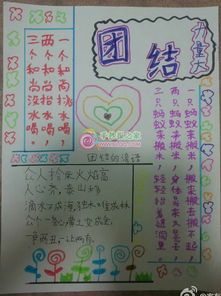 团结
力量大
一个和尚挑水喝，
两个和尚抬水喝，
三个和尚没水喝。
一只蚂蚁来搬米，搬来搬去搬不起，
两只蚂蚁来搬米，身体晃来又晃去，
三只蚂蚁来搬米，轻轻抬着进洞里。
团结的谚语
众人拾柴火焰高
人心齐，泰山移
滴水不成海，独木难成林